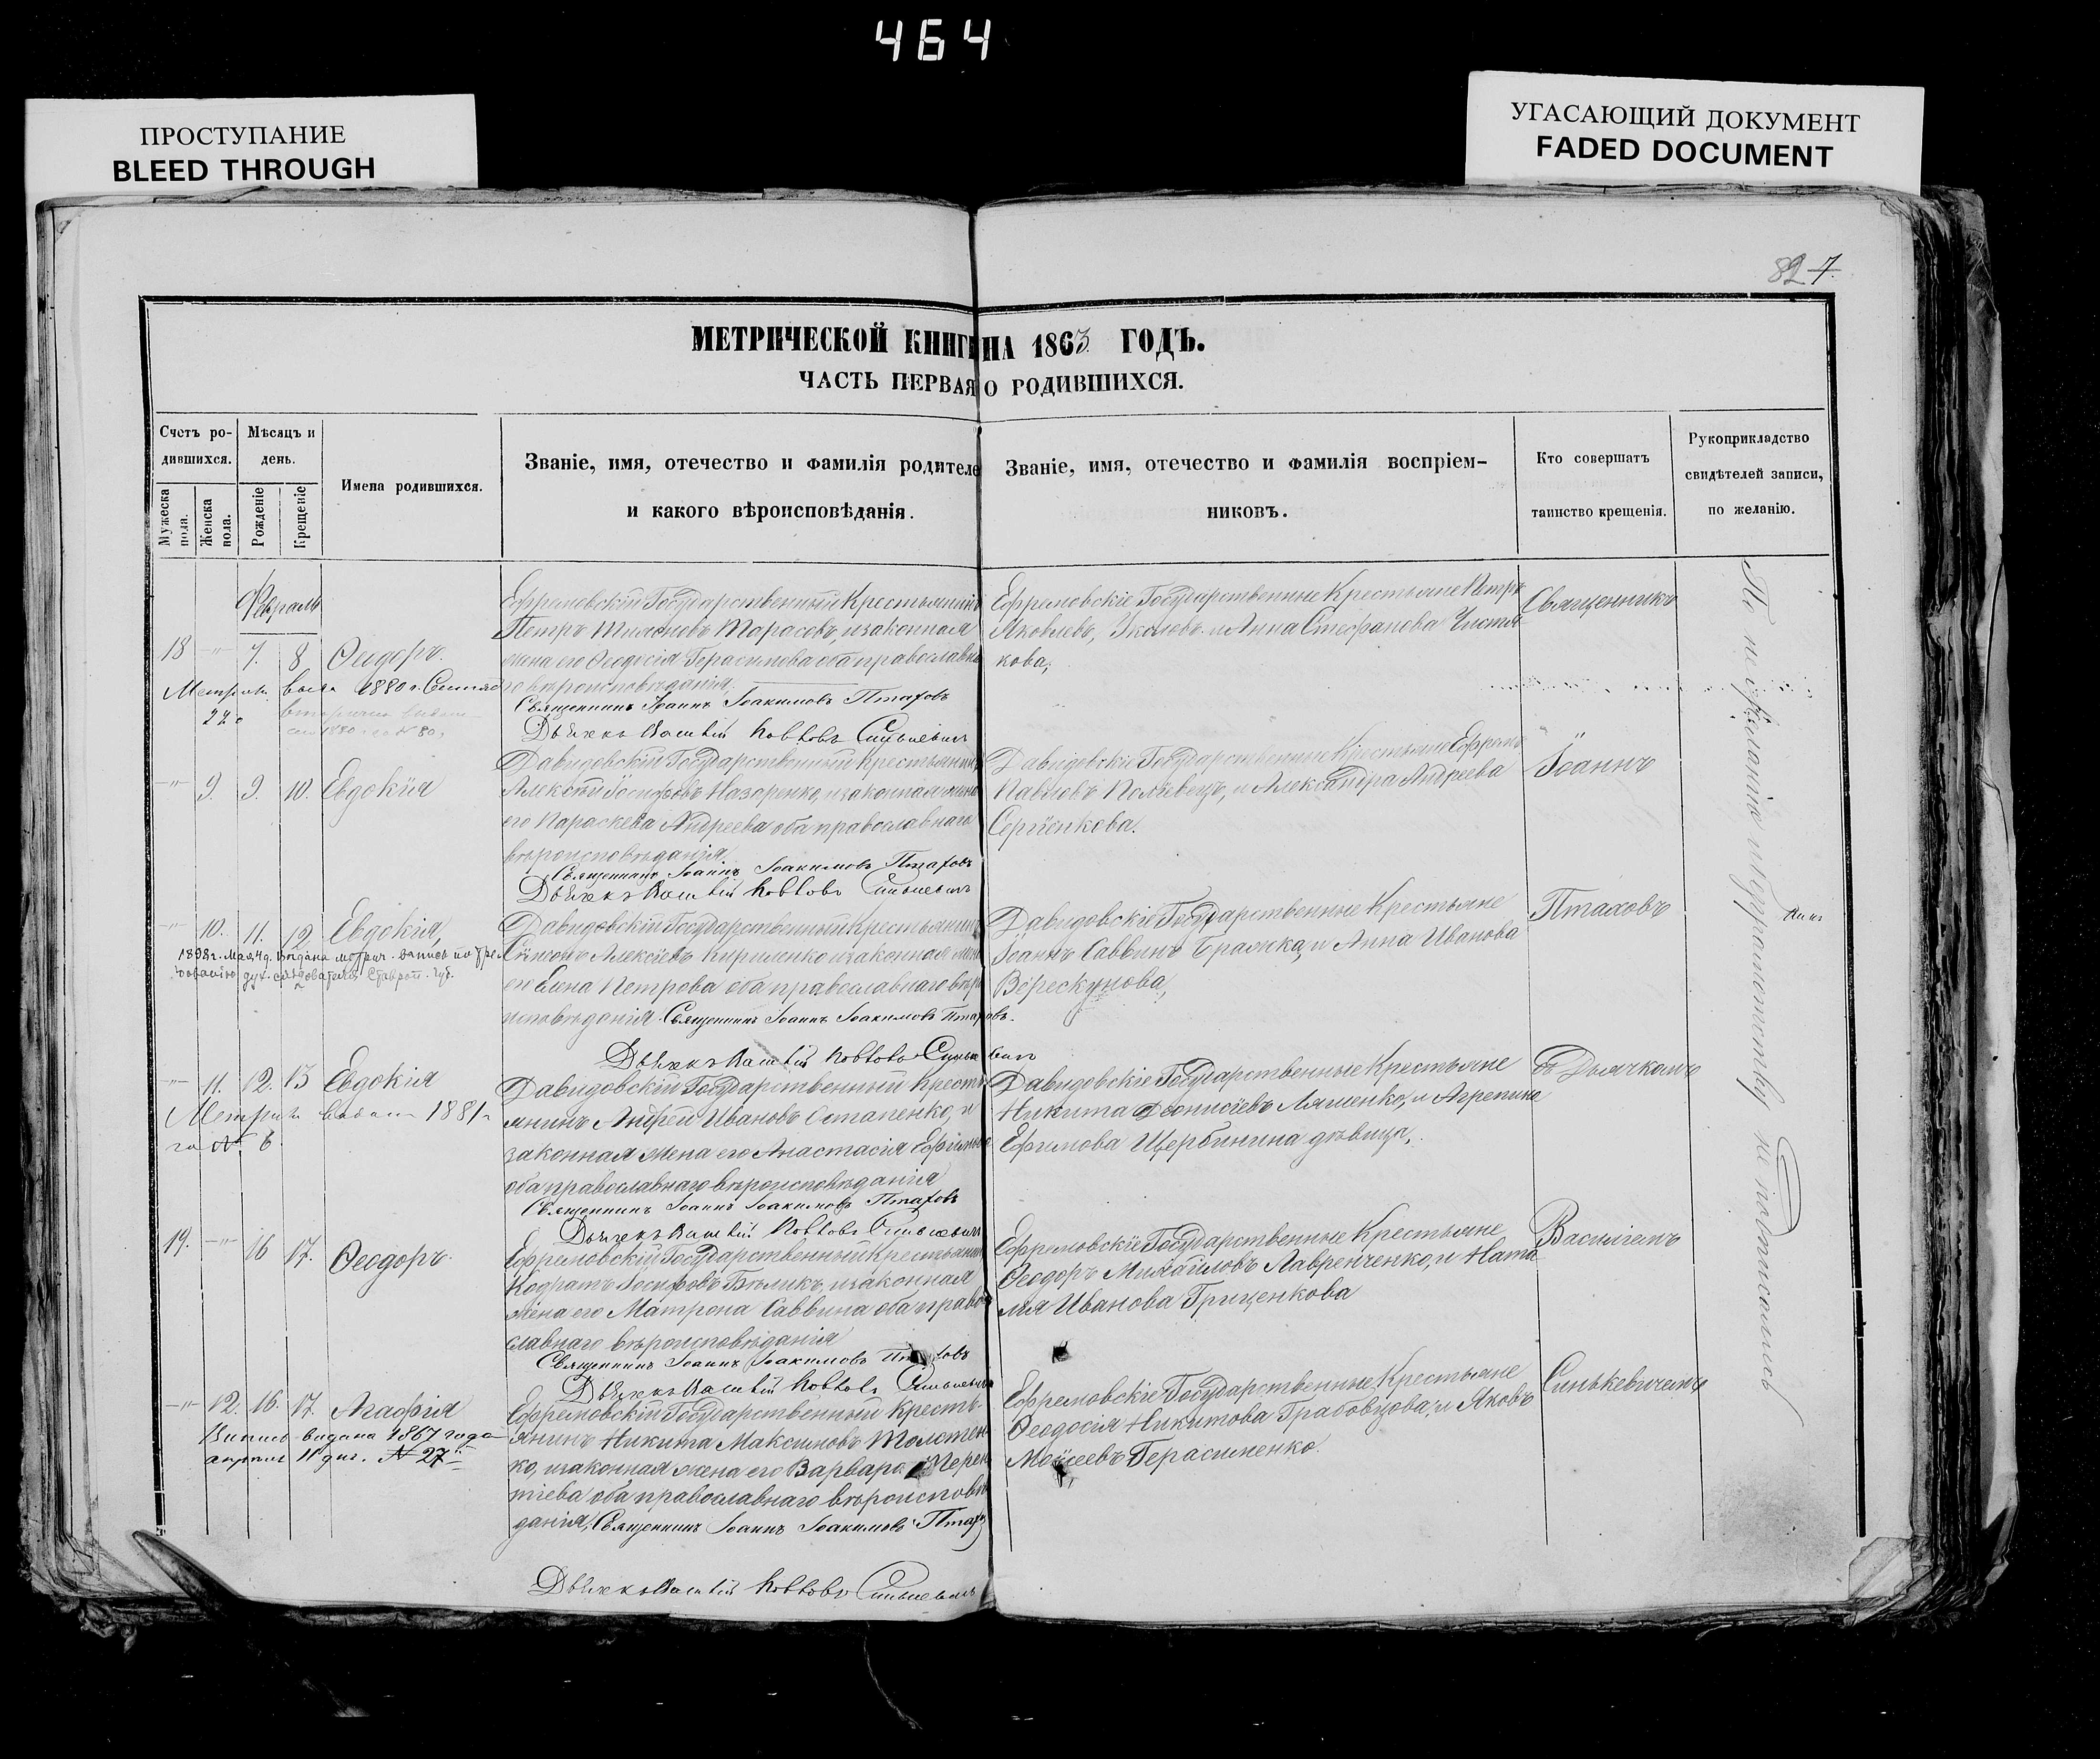 464
ПРОСТУПАНИЕ
BLEED THROUGH
УГАСАЮЩИЙ ДОКУМЕНТ
FADED DOCUMENT
82 7.
МЕТРИЧЕСКОЙ КНИГИ НА 1863 ГОДЪ.
ЧАСТЬ ПЕРВАЯ О РОДИВШИХСЯ.
Счетъ ро-
дившихся.
Мужеска
пола.
Женска
пола.
Мѣсяцъ и
день.
Рожденіе
Крещеніе
Имена родившихся.
Званіе, имя, отечество и фамилія родителе
и какого вѣроисповѣданія.
Званіе, имя, отечество и фамилія воспріем-
никовъ.
Кто совершатъ
таинство крещенія.
Рукоприкладство
свидѣтелей записи,
по желанію.
Февраль
18 -"- 7. 8 Ѳеодоръ.
1880 г.
22
Ефремовскій Государственный Крестьянинъ
Петръ Тарасовъ, и законная
жена его Ѳеодосія Герасимова оба православна
го вѣроисповѣданія.
Священникъ Іоаннъ Іоакимовъ Птаховъ
Дьячекъ Василій Синькевичъ
Ефремовскіе Государственные Крестьяне Петръ
Яковлевъ, и Анна Стефанова
кова,
Священникъ
-"- 9. 9. 10. Евдокія
Давидовскій Государственный Крестьянинъ
Алексѣй Іосифовъ Назаренко, и законная жена
его Параскева Андреева оба православнаго
вѣроисповѣданія.
Священникъ Іоаннъ Іоакимовъ Птаховъ
Дьячекъ Василій Синькевичъ
Давидовскіе Государственные Крестьяне Ефремъ
Павловъ и Александра Андреева
Сергіенкова.
Іоаннъ
-"- 10. 11. 12 Евдокія,
1898 г. Мая 4 д. выдана метрич. запись по тре-
бованію дух. слѣдователя Ставроп. губ.
Давидовскій Государственный Крестьянинъ
Сѵмеонъ Алексѣевъ Кириленко и законная жена
его Елена Петрова оба православнаго вѣро
исповѣданія. Священникъ Іоаннъ Іоакимовъ Птаховъ.
Дьячекъ Василій Синькевичъ
Давидовскіе Государственные Крестьяне
Іоаннъ Саввинъ и Анна Иванова
Верескунова,
Птаховъ
-"- 11. 12. 13 Евдокія
1881 г
за № 6
Давидовскій Государственный Кресть
янинъ Андрей Ивановъ Остапенко, и
законная жена его Анастасія Ефимова
оба православнаго вѣроисповѣданія
Священникъ Іоаннъ Іоакимовъ Птаховъ
Дьячекъ Василій Синькевичъ
Давидовскіе Государственные Крестьяне
Никита Діонисіевъ Ляшенко, и Агрепина
Ефимова Щербинина дѣвица.
съ Дьячкомъ
19. -"- 16 17. Ѳеодоръ.
Ефремовскій Государственный Крестьянинъ
Кодратъ Іосифовъ Бѣликъ, и законная
жена его Матрона Саввина оба право
славнаго вѣроисповѣданія
Священникъ Іоаннъ Іоакимовъ Птаховъ
Дьячекъ Василій Синькевичъ
Ефремовскіе Государственные Крестьяне
Ѳеодоръ Михайловъ Лавренченко, и Ната
лія Иванова Гриценкова
Василіемъ
-"- 12. 16. 17. Агафія
выдана 1867 года
апреля 11 дня. № 27
Ефремовскій Государственный Кресть
янинъ Никита Максимовъ Толстен
ко, и законная жена его Варвара Терен
тіева оба православнаго вѣроисповѣ
данія, Священникъ Іоаннъ Іоакимовъ Птахов
Дьячекъ Василій Синькевичъ
Ефремовскіе Государственные Крестьяне
Ѳеодосія Никитова Грабовцова, и Яковъ
Моисеевъ Герасименко.
Синькевичемъ
По не желанію и неграмотству не подписались